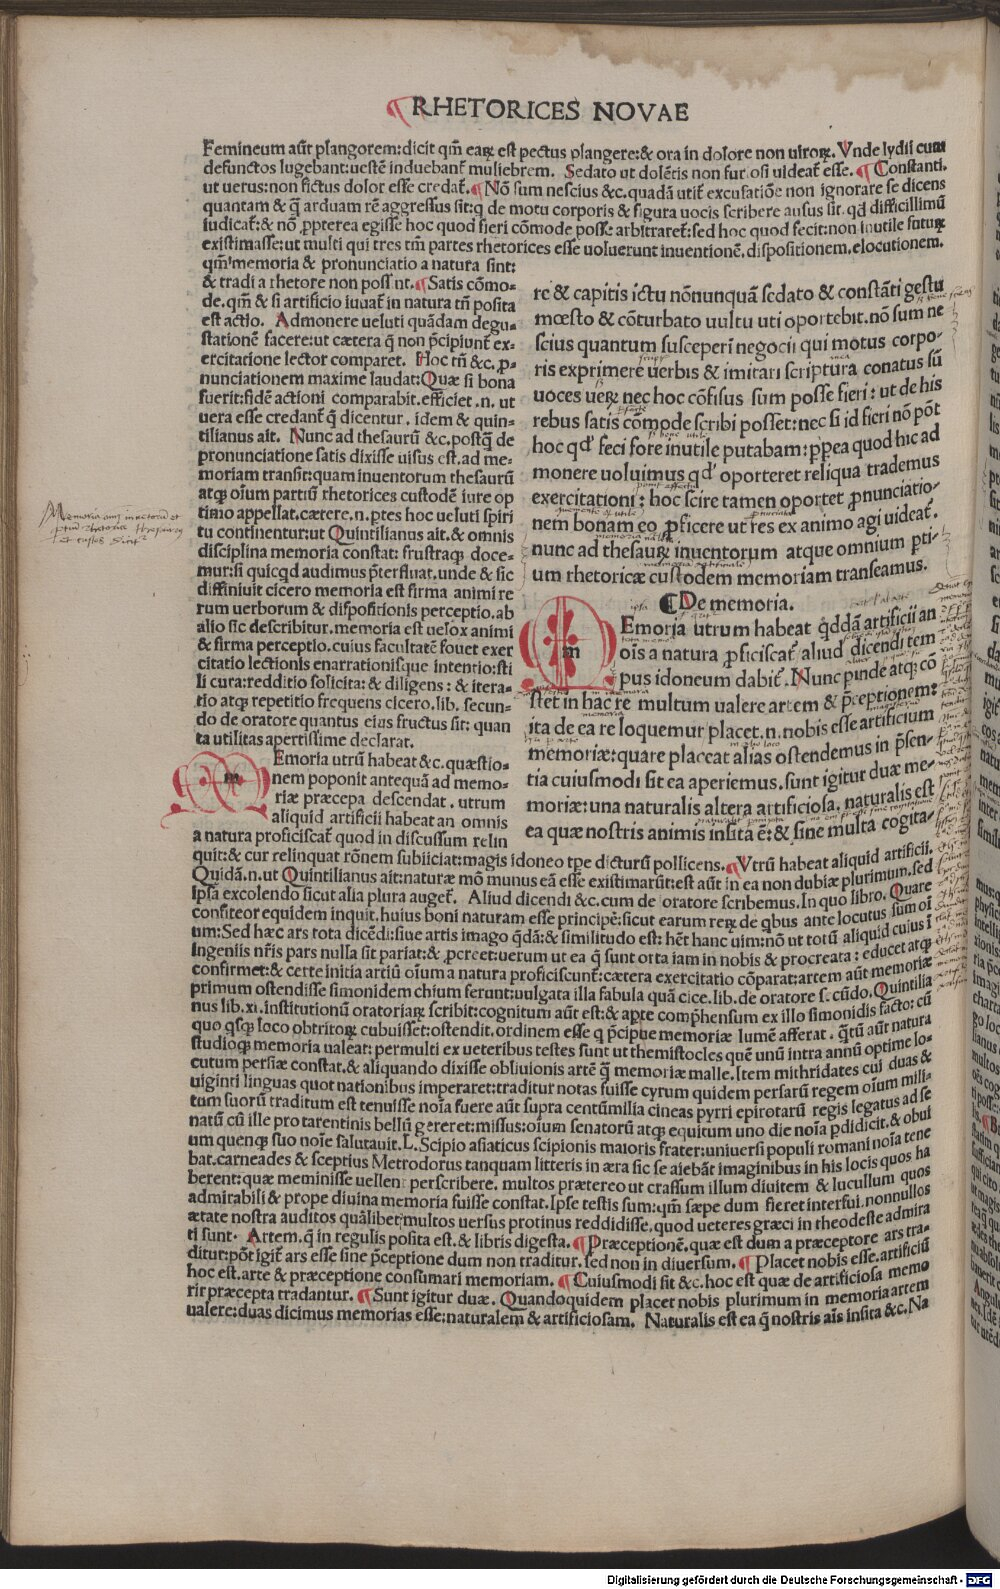 ¶RHETORICES NOVAE
Femineum aūt plangorem:dicit qm̄ earꝝ est pectus plangere:& ora in dolore non uirorꝝ. Vnde lydii cum
defunctos lugebant:uestē induebant̄ muliebrem. Sedato ut dolētis non furiosi uideat̄ esse. ¶Constanti.
ut uerus:non fictus dolor esse credat̄.¶Nō sum nescius &c.quadā utit̄ excusatiōe non ignorare se dicens
quantam & q̄ arduam rē aggressus sit:q de motu corporis & figura uocis scribere ausus sit. qd difficillimū
iudicat̄:& nō ꝓpterea egisse hoc quod fieri cōmode posse arbitraret̄:sed hoc quod fecit:non inutile futurꝝ
existimasse:ut multi qui tres tm̄ partes rhetorices esse uoluerunt inuentionē.dispositionem.elocutionem.
qm̄ memoria & pronunciatio a natura sint:
& tradi a rhetore non possint.¶Satis cōmo-
de.qm̄ & si artificio iuuat̄ in natura tn̄ posita
est actio. Admonere ueluti quādam degu-
stationē facere:ut cætera q̄ non p̄cipiunt̄ ex-
ercitatione lector comparet. Hoc tn̄ &c.ꝓ-
nunciationem maxime laudat:Quæ si bona
fuerit:fidē actioni comparabit.efficiet.n.ut
uera esse credant̄ q̄ dicentur. idem & quin-
tilianus ait. Nunc ad thesaurū &c.postq̄ de
pronunciatione satis dixisse uisus est.ad me-
moriam transit:quam inuentorum thesaurū
atqꝫ oīum partiū rhetorices custodē iure op
timo appellat.cætere.n.ꝑtes hoc ueluti spiri
tu continentur:ut Quintilianus ait.& omnis
disciplina memoria constat: frustraqꝫ doce-
mur:si quicqd audimus p̄terfluat.unde & sic
diffiniuit cicero memoria est firma animi re
rum uerborum & dispositionis perceptio.ab
alio sic describitur.memoria est uelox animi
& firma perceptio.cuius facultatē fouet exer
citatio lectionis enarrationisque intentio:sti
li cura:redditio solicita:& diligens: & itera-
tio atqꝫ repetitio frequens cicero.lib. secun-
do de oratore quantus eius fructus sit: quan
ta utilitas apertissime declarat.
m Emoria utrū habeat &c.quæstio-
nem poponit antequā ad memo-
riæ præcepa descendat. utrum
aliquid artificii habeat an omnis
a natura proficiscat̄ quod in discussum relin
re & capitis ictu nōnunquā sedato & constāti gestu
mœsto & cōturbato uultu uti oportebit.nō sum ne
scius quantum susceperī negocii qui motus corpo-
ris exprimere uerbis & imitari scriptura conatus sū
uoces uerꝝ nec hoc cōfisus sum posse fieri: ut de his
rebus satis cōmode scribi posset:nec si id fieri nō pōt
hoc qd feci fore inutile putabam:ꝓpea quod hic ad
monere uoluimus qd oporteret reliqua trademus
exercitationi: hoc scire tamen oportet ꝓnunciatio-
nem bonam eo ꝓficere ut res ex animo agi uideat̄.
nunc ad thesaurꝝ inuentorum atque omnium ꝑti-
um rhetoricæ custodem memoriam transeamus.
¶De memoria.
m Emoria utrum habeat qddā artificii an
oīs a natura ꝓficiscat̄ aliud dicendi tem
pus idoneum dabit̄. Nunc ꝑinde atqꝫ cō
stet in hac re multum ualere artem & p̄ceptionem:
ita de ea re loquemur placet.n.nobis esse artificium
memoriæ:quare placeat alias ostendemus in p̄sen-
tia cuiusmodi sit ea aperiemus.sunt igitur duæ me-
moriæ:una naturalis altera artificiosa. naturalis est
ea quæ nostris animis insita ē: & sine multa cogita-
quit:& cur relinquat rōnem subiiciat:magis idoneo tpe dicturū pollicens.¶Vtrū habeat aliquid artificii.
Quidā.n.ut Quintilianus ait:naturæ mō munus eā esse existimarūt:est aūt in ea non dubiæ plurimum.sed
ipsa excolendo sicut alia plura auget̄. Aliud dicendi &c.cum de oratore scribemus.In quo libro. Quare
confiteor equidem inquit.huius boni naturam esse principē:sicut earum rerꝝ de qbus ante locutus sum oī
um:Sed hæc ars tota dicēdi:siue artis imago qdā:& similitudo est: hēt hanc uim:nō ut totū aliquid cuius ī
ingeniis nr̄is pars nulla sit pariat:& ꝓcreet:uerum ut ea q̄ sunt orta iam in nobis & procreata: educet atqꝫ
confirmet:& certe initia artiū oīum a natura proficiscunt̄:cætera exercitatio cōparat:artem aūt memoriæ
primum ostendisse simonidem chium ferunt:uulgata illa fabula quā cice.lib.de oratore s.cūdo.Quintilia
nus lib.xi.institutionū oratoriarꝝ scribit:cognitum aūt est:& apte comp̄hensum ex illo simonidis facto:cū
quo qsqꝫ loco obtritorꝝ cubuisset:ostendit.ordinem esse q p̄cipue memoriæ lumē afferat. q̄tū aūt natura
studioqꝫ memoria ualeat:permulti ex ueteribus testes sunt ut themistocles quē unū intra annū optime lo-
cutum persiæ constat.& aliquando dixisse obliuionis artē q̄ memoriæ malle.Item mithridates cui duas &
uiginti linguas quot nationibus imperaret:traditur notas fuisse cyrum quidem persarū regem oīum mili-
tum suorū traditum est tenuisse noīa fuere aūt supra centūmilia cineas pyrri epirotarū regis legatus ad se
natū cū ille pro tarentinis bellū gereret:missus:oīum senatorū atqꝫ equitum uno die noīa ꝑdidicit.& obui
um quenqꝫ suo noīe salutauit.L.Scipio asiaticus scipionis maioris frater:uniuersi populi romani noīa tene
bat.carneades & sceptius Metrodorus tanquam litteris in æra sic se aiebāt imaginibus in his locis quos ha
berent:quæ meminisse uellent perscribere. multos prætereo ut crassum illum diuitem & lucullum quos
admirabili & prope diuina memoria fuisse constat.Ipse testis sum:qm̄ sæpe dum fieret intersui.nonnullos
ætate nostra auditos quālibet:multos uersus protinus reddidisse.quod ueteres græci in theodeste admira
ti sunt. Artem.q̄ in regulis posita est.& libris digesta.¶Præceptionē.quæ est dum a præceptore ars tra-
ditur:pōt igit̄ ars esse sine p̄ceptione dum non traditur.sed non in diuersum.¶Placet nobis esse.artificiū
hoc est.arte & præceptione consumari memoriam. ¶Cuiusmodi sit &c.hoc est quæ de artificiosa memo
rir præcepta tradantur.¶Sunt igitur duæ. Quandoquidem placet nobis plurimum in memoria artem
ualere:duas dicimus memorias esse:naturalem & artificiosam. Naturalis est ea q̄ nostris aīs insita &c.Na
Digitalisierung gefördert durch die Deutsche Forschungsgemeinschaft - DFG